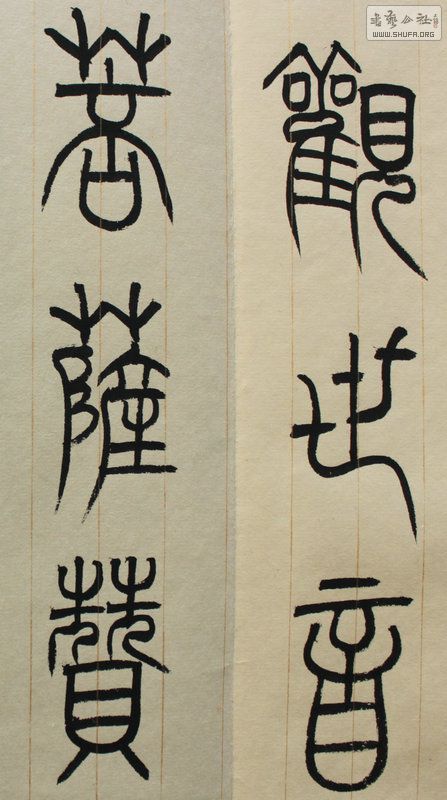 觀世音
菩薩贊
書藝公社
WWW.SHUFA.ORG